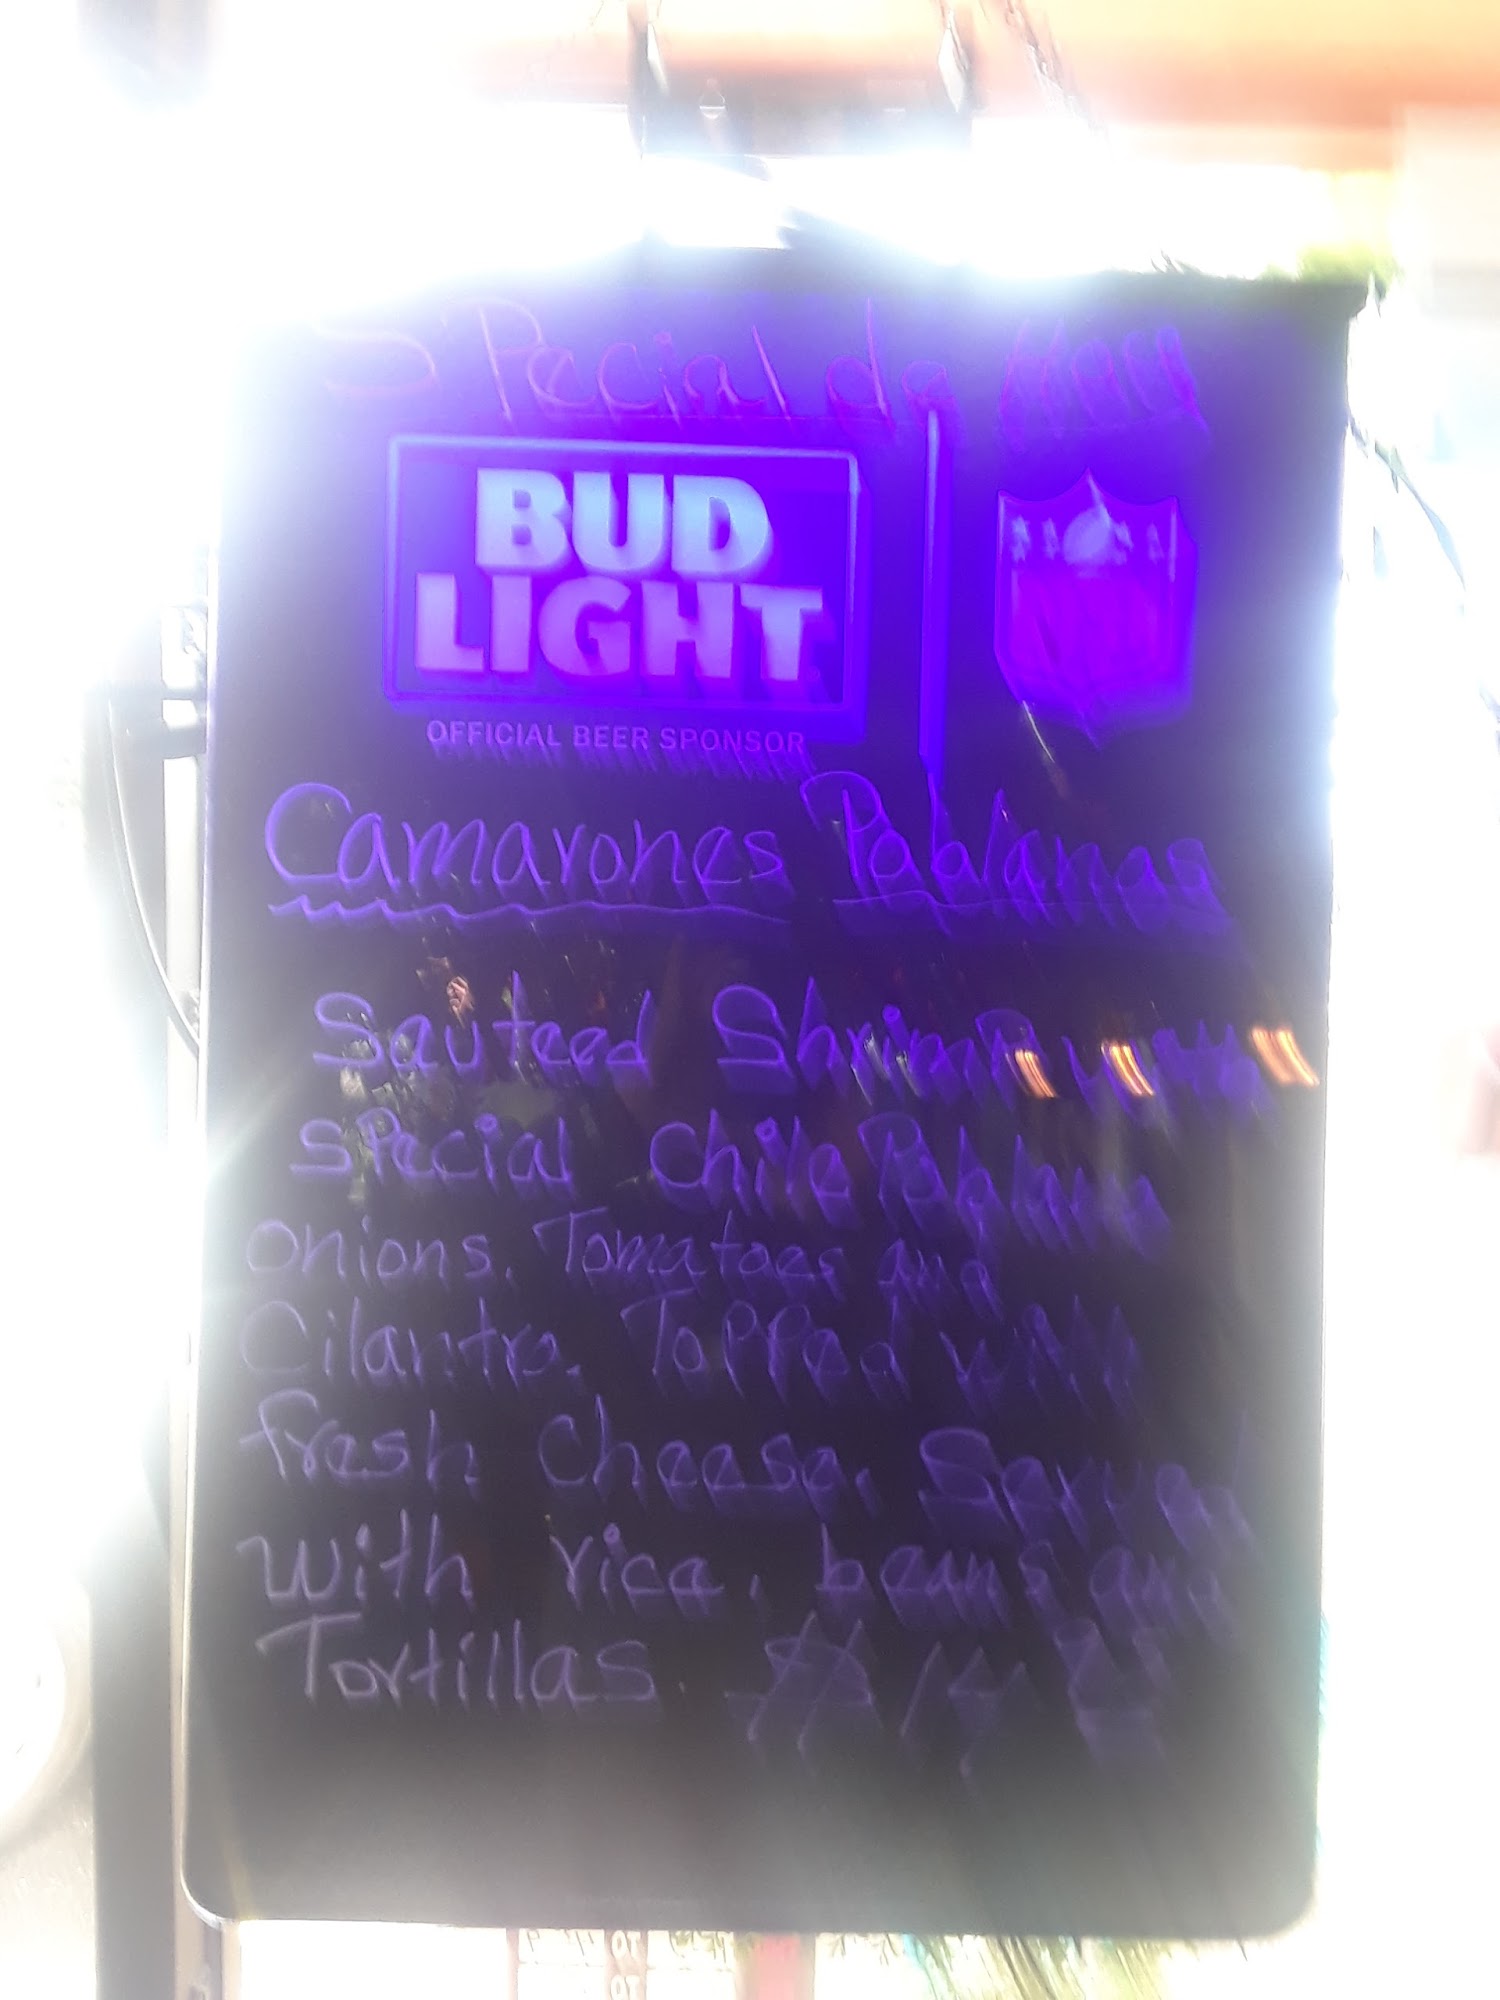 Special de
BUD
LIGHT
OFFICIAL BEER SPONSOR
Camarones Poblanos
Sauteed Shrimp with
Special Chile Poblano
onions, Tomatoes and
Cilantro. Topped with
fresh Cheese, Served
with rice, beans and
Tortillas.